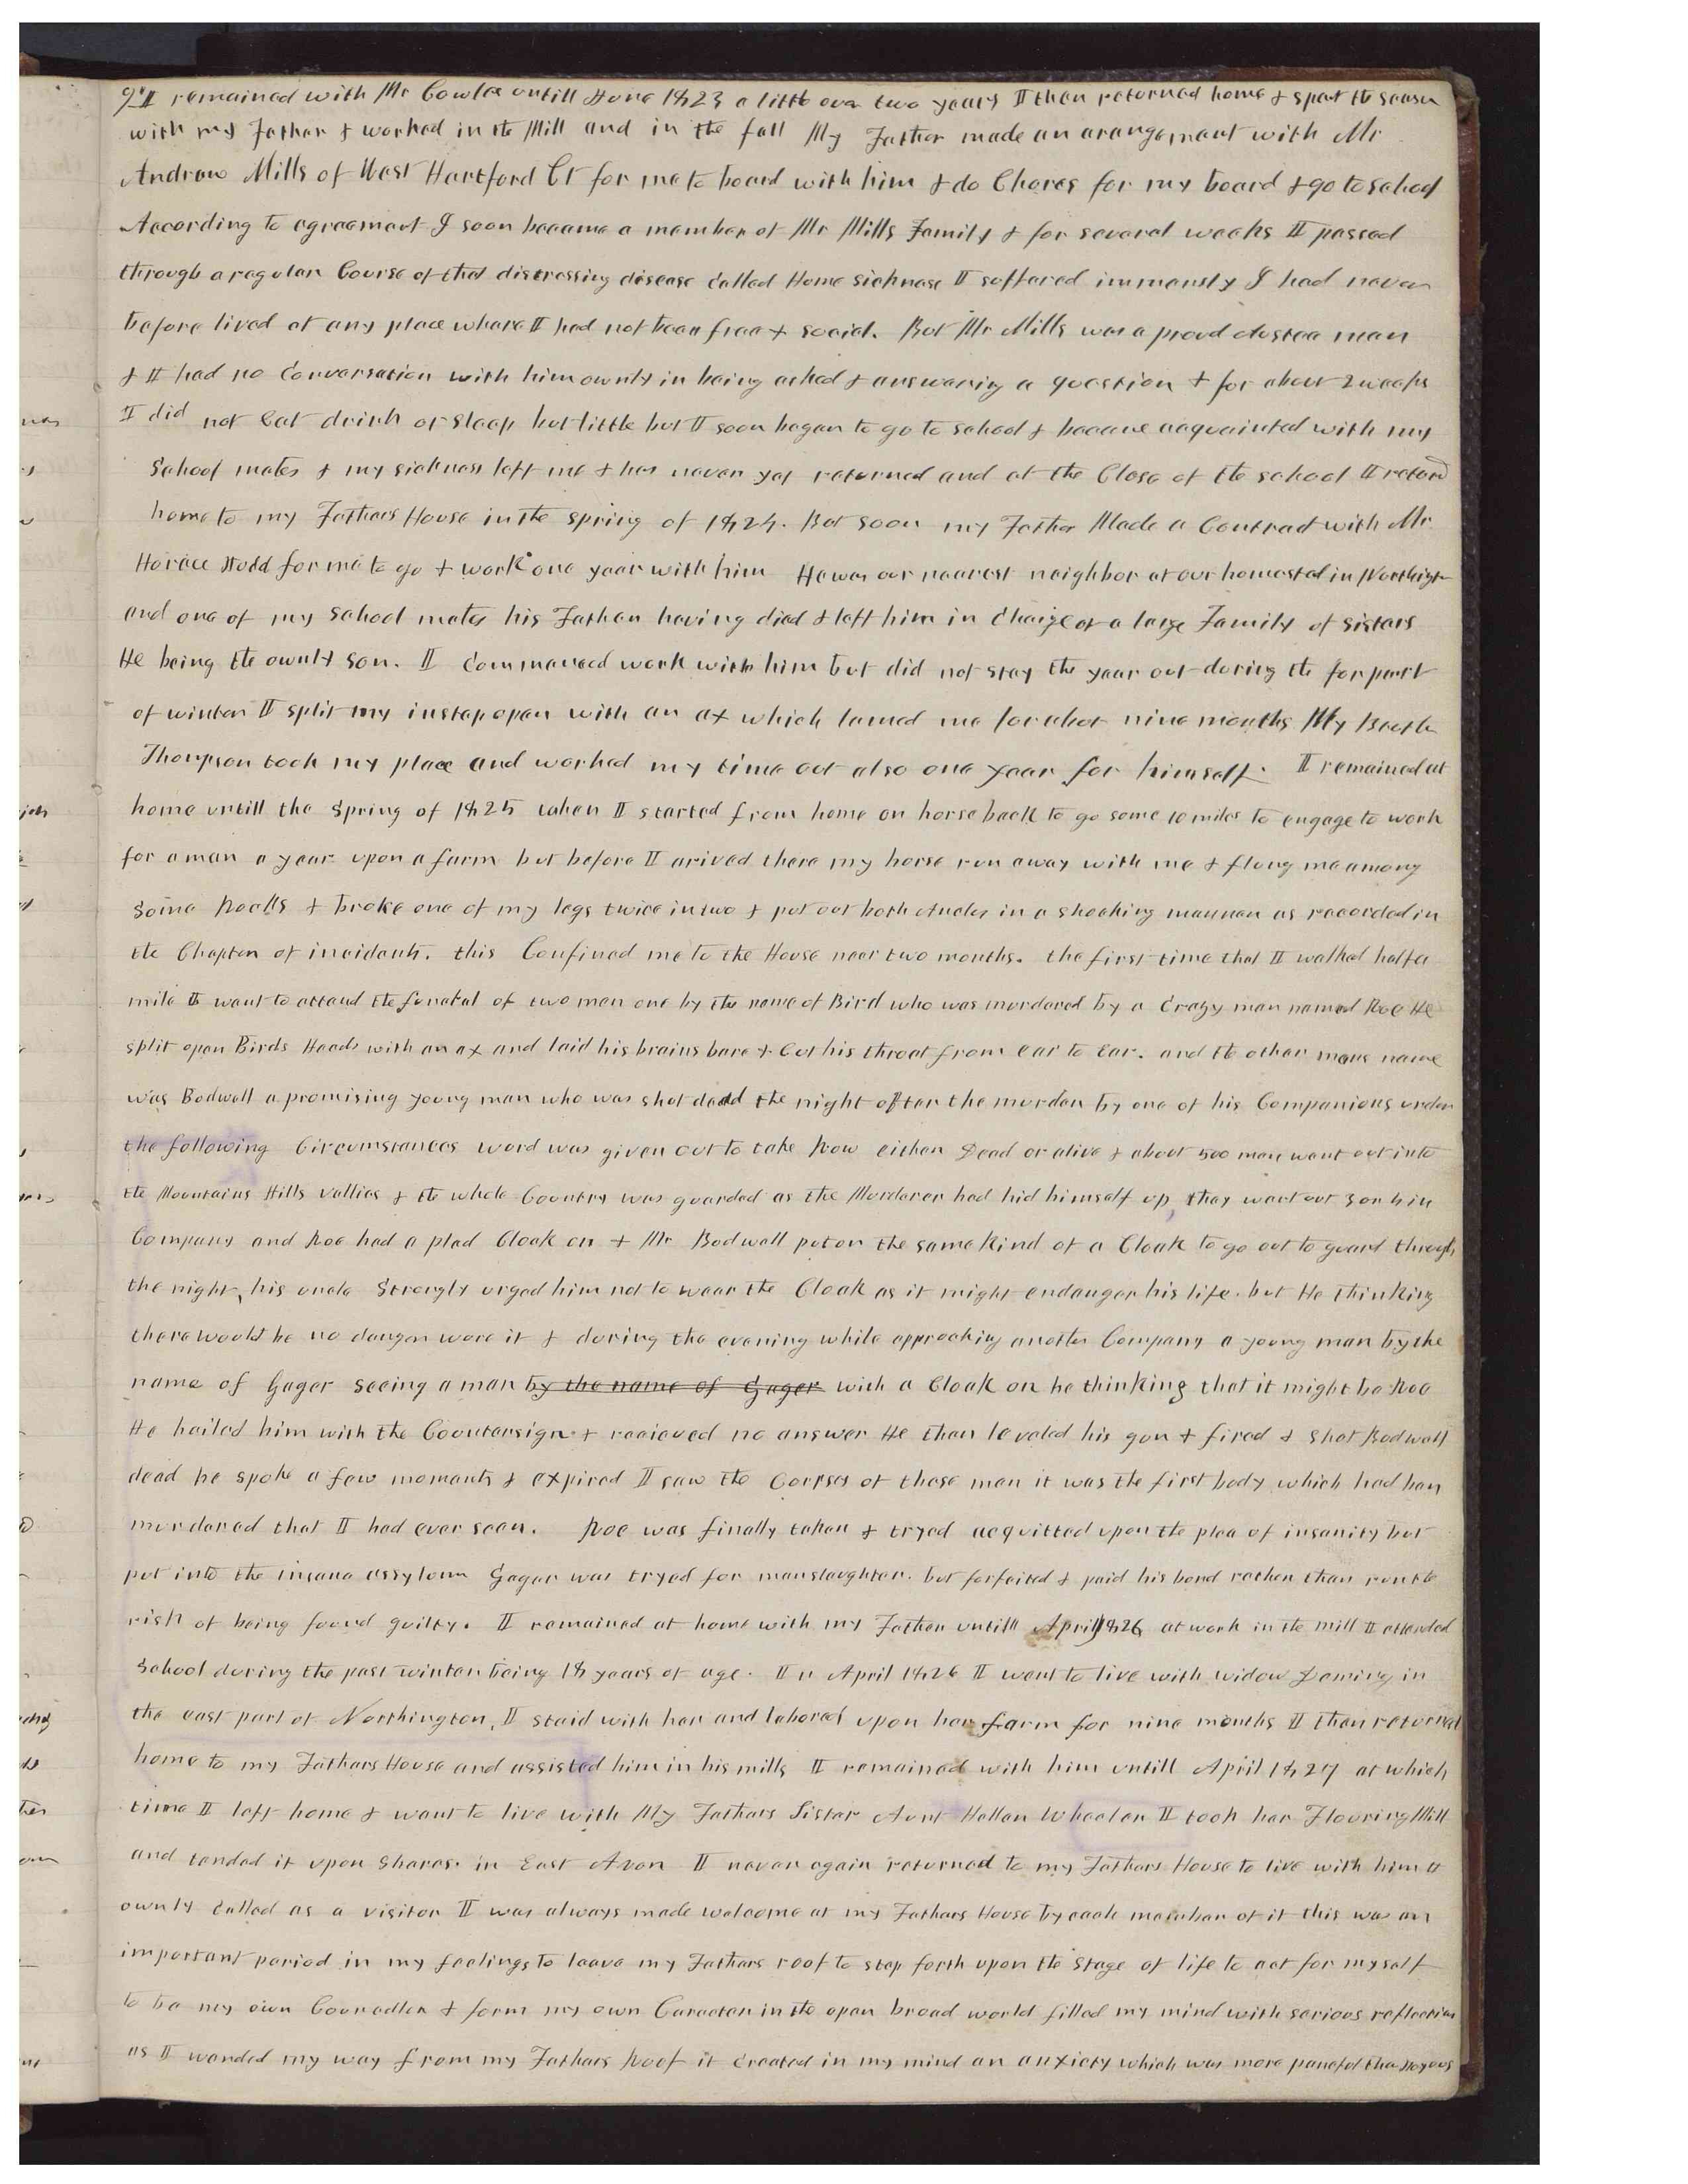 9 I remained with Mr Cowles untill June 1823 a little over two years I then returned home & spent the season
with my Father & worked in the Mill and in the fall My Father made an arangement with Mr
Andrew Mills of West Hartford Ct for me to board with him & do Chores for my board & go to school
According to agreement I soon became a member of Mr Mills Family & for several weeks I passed
through a regular Course of that distressing disease Called Home sickness I suffered immensly I had never
before lived at any place where I had not been free & social. But Mr Mills was a proud austere man
& I had no Conversation with him ownly in being asked & answering a question & for about 2 weeks
I did not Eat drink or Sleep but little but I soon began to go to school & became acquainted with my
School mates & my sickness left me & has never yet returned and at the Close of the school I returd
home to my Fathers House in the spring of 1824. But soon my Father Made a Contract with Mr
Horace Judd for me to go & work one year with him He was our nearest neighbor at our homested in Northigton
and one of my school mates his Father having died & left him in Charge of a large Family of sisters
He being the ownly son. I Commenced work with him but did not stay the year out during the forpart
of winter I split my instep open with an ax which lamed me for about nine months My Brother
Thompson took my place and worked my time out also one year for himself. I remained at
home untill the Spring of 1825 when I started from home on horse back to go some 10 miles to engage to work
for a man a year upon a farm but before I arived there my horse run away with me & flung me among
some Rocks & broke one of my legs twice in two & put out both ancles in a shocking mannor as recorded in
the Chapter of incidents. this Confined me to the House near two months. the first time that I walked half a
mile I went to attend the funeral of two men one by the name of Bird who was murdered by a Crazy man named Roe He
split open Birds Heads with an ax and laid his brains bare & Cut his throat from Ear to Ear. and the other mans name
was Bodwell a promising young man who was shot dead the night after the murder by one of his Companions under
the following Circumstances word was given out to take Row either Dead or alive & about 500 men went out into
the Mountains Hills vallies & the whole Country was guarded as the Murderer had hid himself up, they went out 3 or 4 in
Company and Roe had a plad Cloak on & Mr Bodwell put on the same Kind of a Cloak to go out to guard through
the night, his uncle Strongly urged him not to wear the Cloak as it might endanger his life. but He Thinking
there would be no danger wore it & during the evening while approching another Company a young man by the
name of Gager seeing a man by the name of Gager with a Cloak on he thinking that it might be Roe
He hailed him with the Countersign & recieved no answer He then leveled his gun & fired & Shot Bodwell
dead he spoke a few moments & expired I saw the Corpses of these men it was the first body which had ben
murdered that I had ever seen. Roe was finally taken & tryed acquitted upon the plea of insanity but
put into the insane assylum Gager was tryed for manslaughter. but forfeited & paid his bond rather than run the
risk of being found guilty. I remained at home with my Father untill April 1826 at work in the mill I attended
School during the past winter being 18 years of age. In April 1826 I went to live with widow Deming in
the east part of Northington, I staid with her and labored upon her farm for nine months I then returned
home to my Fathers House and assisted him in his mills I remained with him untill April 1827 at which
time I left home & went to live with My Fathers Sister Aunt Hellen Wheeler I took her Flouring Mill
and tended it upon Shares. in East Avon I never again returned to my Fathers House to live with him I
ownly Called as a visitor I was always made welcome at my Fathers House by each member of it this was an
important period in my feelings to leave my Fathers roof to step forth upon the Stage of life to act for myself
to be my own Councellor & form my own Caracter in the open broad world filled my mind with serious reflection
as I wended my way from my Fathers Roof it Created in my mind an anxiety which was more paneful than joyous